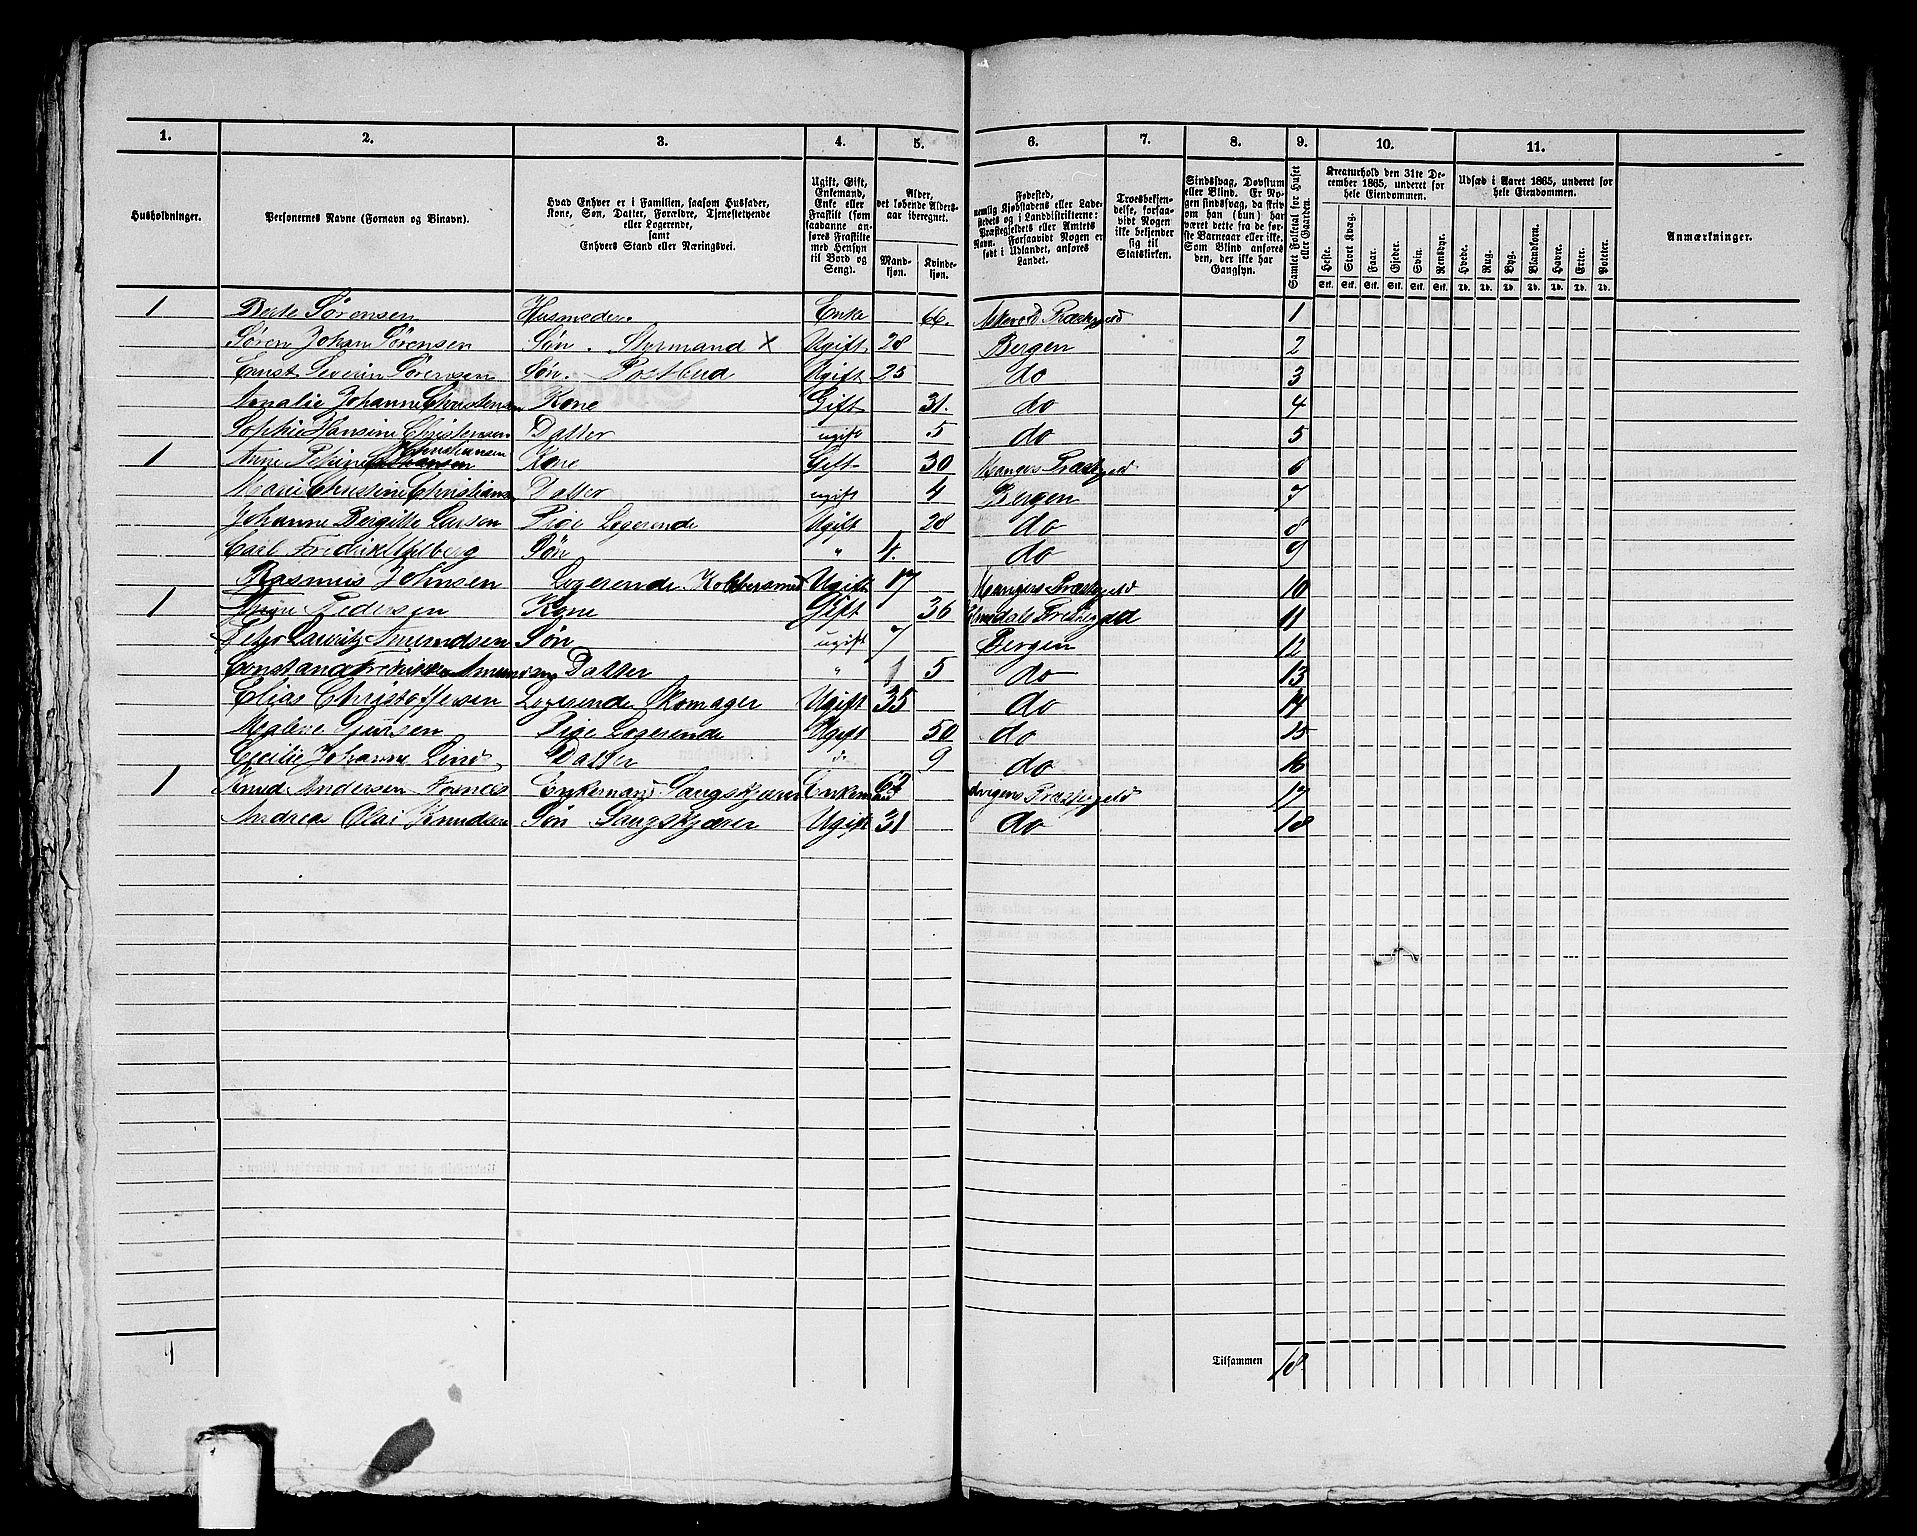 1. 2. 3. 4. 5. 6. 7. 8. 9. 10. 11.
Husholdninger.
Personernes Navne (Fornavn og Binavn).
Hvad Enhver er i Familien, saasom Husfader, Kone, Søn, Datter, Forældre, Tjenestetyende eller Logerende, samt Enhvers Stand eller Næringsvei.
Ugift, Gift, Enkemand, Enke eller Fraskilt (som saadanne anføres Fraskilte med Hensyn til Bord og Seng).
Alder, det løbende Aldersaar iberegnet.
Mandkjøn. Kvindekjøn.
Fødested, nemlig Kjøbstadens eller Ladestedets og i Landdistrikterne: Præstegjeldets eller Amtets Navn. Forsaavidt Nogen er født i Udlandet, anføres Landet.
Troesbekjendelse, forsaavidt Nogen ikke bekjender sig til Statskirken.
Sindssvag, Døvstum eller Blind. Er Nogen sindssvag, da skrives om han (hun) har været dette fra de første Barneaar eller ikke. Som Blind anføres den, der ikke har Gangsyn.
Samlet Folketal for Huset eller Gaarden.
Kreaturhold den 31te December 1865, underet for hele Eiendommen.
Heste. Stort Kvæg. Faar. Gjeder. Svin. Rensdyr.
Stk. Stk. Stk. Stk. Stk. Stk.
Udsæd i Aaret 1865, underet for hele Eiendommen.
Hvede. Rug. Byg. Blandkorn. Havre. Erter. Poteter.
Td. Td. Td. Td. Td. Td. Td.
Anmærkninger.
1 Berte Sørensen Husmoder Enke 66. Præstegjeld 1
Søren Johan Sørensen Søn. Styrmand x Ugift 28 Bergen 2
Ernst Severin Sørensen Søn. Postbud Ugift 25 do 3
Amalie Johanne Christensen Kone Gift 31. do 4
Sophie Hansine Christensen Datter ugift 5 do 5
1 Anne Christiansen Kone Gift 30 Mangers Præstgjeld 6
Marie Christine Christiansen Datter ugift 4 Bergen 7
Johanne Bergitte Larsen Pige Logerende Ugift 28 do 8
Carl Fredrik Søn " 4. do 9
Rasmus Johnsen Logerende Kobbersmed Ugift 17 Mangers Præstgjeld 10
1 Pedersen Kone Gift 36 Præstegjeld 11
Peter Lauritz Amundsen Søn ugift 7 Bergen 12
Datter " 1 5 do 13
Elias Christoffersen Logerende Skomager Ugift 35 do 14
Malene Pige Logerende Ugift 50 do 15
Cecilie Johanne Lind Datter 9 do 16
1 Knud Andersen Enkemand Saugskjærer Enkemand 62 Præstegjeld 17
Andreas Olai Knudsen Søn Saugskjærer Ugift 31 do 18
4 Tilsammen 18